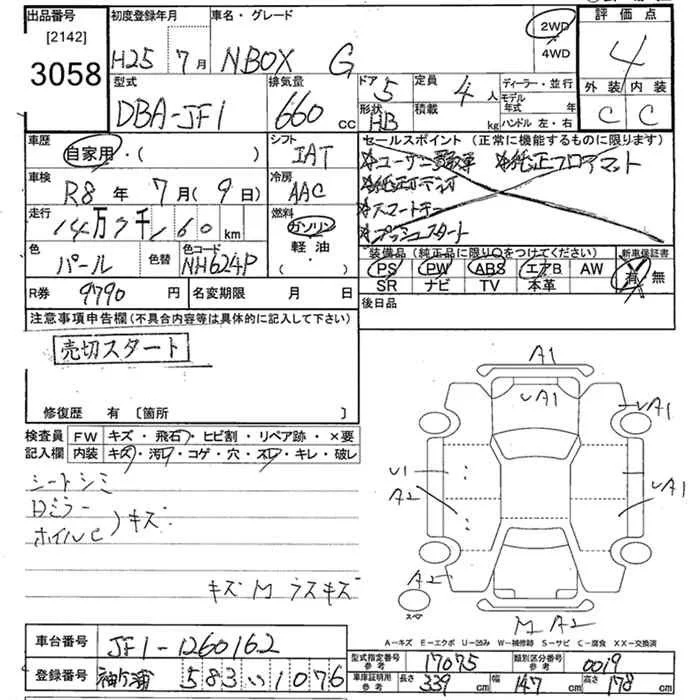 出品番号
[2142]
3058
初度登録年月
H25 7月
車名・グレード
NBOX G
2WD
4WD
評価点
4
外装 内装
C C
型式
DBA-JF1
排気量
660 cc
ドア 5
定員 4人
形状 HB
積載 kg
ディーラー・並行
モデル年式 年
ハンドル 左・右
車歴
自家用・( )
シフト
IAT
セールスポイント (正常に機能するものに限ります)
☆ユーザー買取車 ☆純正フロアマット
☆純正オーディオ
☆スマートキー
☆プッシュスタート
車検
R8年 7月(9日)
冷房
AAC
走行
14万7千160km
燃料
ガソリン
軽油
・( )
色
パール
色替
色コード
NH624P
装備品 (純正品に限り○をつけてください)
PS PW ABS エアB AW
SR ナビ TV 本革
新車保証書
有 無
R券 9790円
名変期限 月 日
後日品
注意事項申告欄(不具合内容等は具体的に記入して下さい)
売切スタート
修復歴 有 [箇所 ]
検査員記入欄
FW キズ・飛石・ヒビ割・リペア跡・×要
内装 キズ・汚レ・コゲ・穴・スレ・キレ・破レ
シートシミ
ロミラー
ホイルC
)キズ
キズM ラスキズ
A1
UA1
UA1
U1
A2
UA1
A2
スペア
M A2
A-キズ E-エクボ U-凹み W-補修跡 S-サビ C-腐食 XX-交換済
車台番号 JF1-1260162
登録番号 袖ケ浦 583 い 1076
型式指定番号 参考 17075
類別区分番号 参考 0019
車庫証明用 参考 長さ 339cm 幅 147cm 高さ 178cm